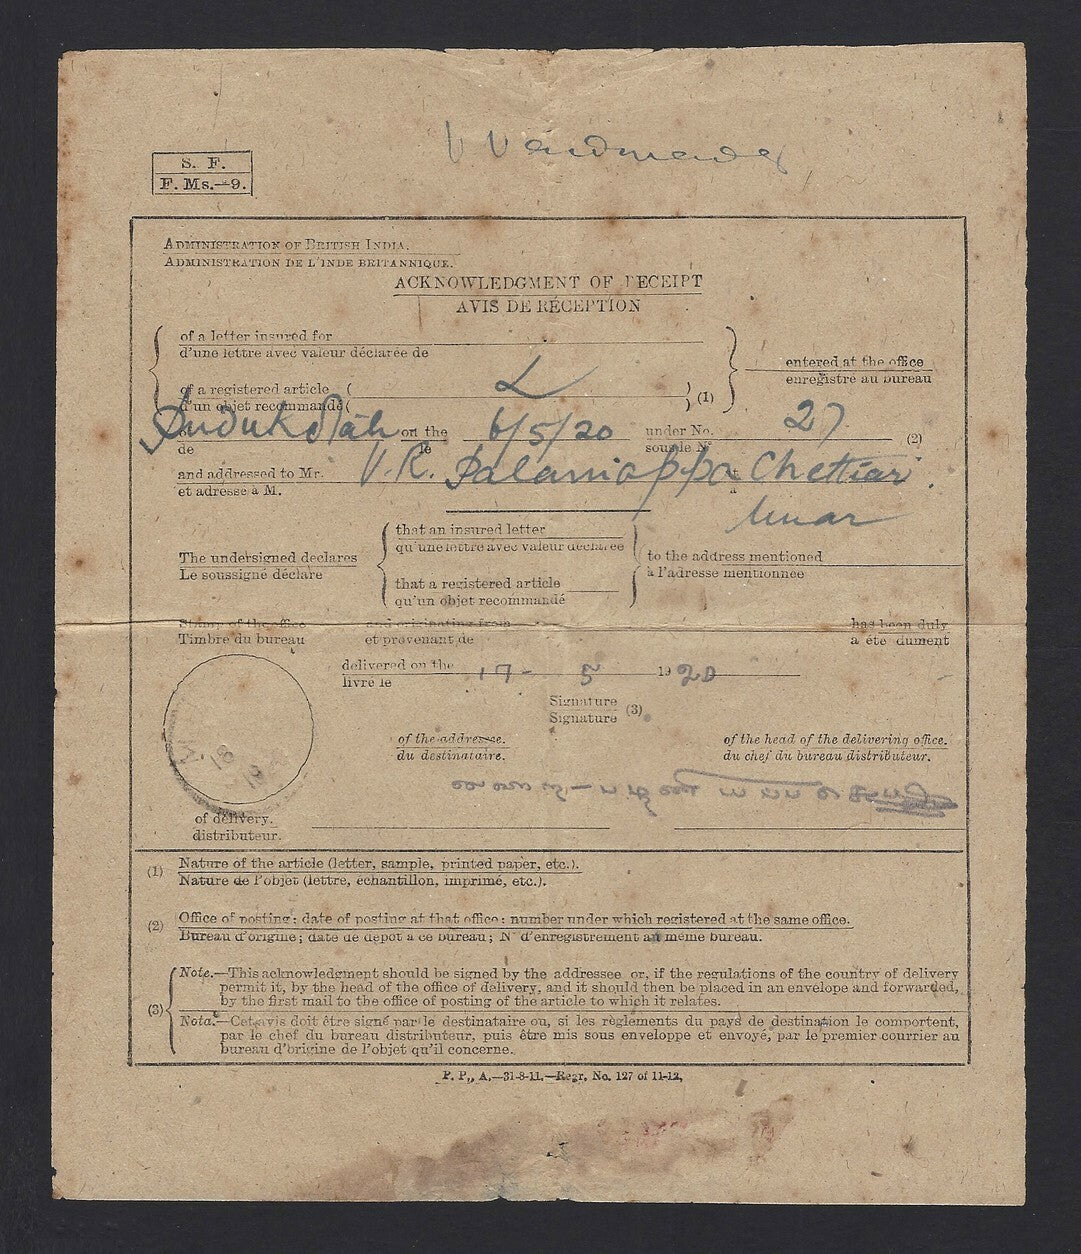 S. F.
F. Ms.—9.
ADMINISTRATION OF BRITISH INDIA.
ADMINISTRATION DE L'INDE BRITANNIQUE.
ACKNOWLEDGMENT OF RECEIPT
AVIS DE RÉCEPTION
of a letter insured for
d'une lettre avec valeur déclarée de
entered at the office
enregistré au bureau
of a registered article ( L ) (1)
d'un objet recommandé ( )
on the 6/5/20 under No. 27 (2)
de le sous le N°
and addressed to Mr. V. R. Palaniappa Chettiar.
et adressé à M.
The undersigned declares
Le soussigné déclare
that an insured letter
qu'une lettre avec valeur déclarée
that a registered article
qu'un objet recommandé
to the address mentioned
à l'adresse mentionnée
Stamp of the office and originating from has been duly
Timbre du bureau et provenant de a été dument
delivered on the 17 - 5 1920
livré le
Signature (3)
Signature
of the addresse.
du destinataire.
of the head of the delivering office.
du chef du bureau distributeur.
of delivery.
distributeur.
(1) Nature of the article (letter, sample, printed paper, etc.).
Nature de l'objet (lettre, échantillon, imprimé, etc.).
(2) Office of posting; date of posting at that office; number under which registered at the same office.
Bureau d'origine; date de dépôt à ce bureau; N° d'enregistrement au même bureau.
(3) Note.—This acknowledgment should be signed by the addressee or, if the regulations of the country of delivery
permit it, by the head of the office of delivery, and it should then be placed in an envelope and forwarded,
by the first mail to the office of posting of the article to which it relates.
Nota.—Cet avis doit être signé par le destinataire ou, si les règlements du pays de destination le comportent,
par le chef du bureau distributeur, puis être mis sous enveloppe et envoyé, par le premier courrier au
bureau d'origine de l'objet qu'il concerne.
P. P., A.—31-8-11.—Regr. No. 127 of 11-12.